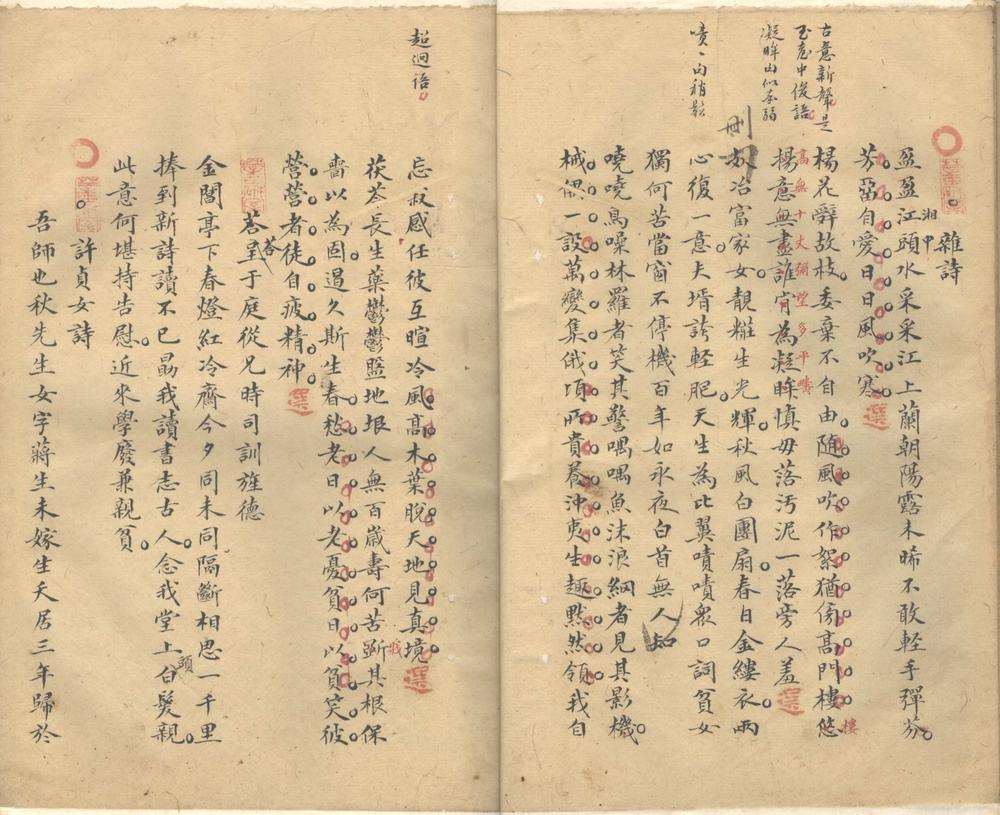 古意新聲是
玉臺中俊語
凝眸句似奈弱
嘖嘖句稍鬆
刪
雜詩
盈盈江頭水采采江上蘭朝陽露未晞不敢輕手彈芬
湘中
芬當自愛日日風吹寒
選
楊花辭故枝委棄不自由隨風吹作絮猶傍高門樓悠
樓
高無十丈彌望多平疇
楊意無盡誰肯為凝眸慎毋落污泥一落旁人羞
選
妖冶富家女靚粧生光輝秋風白團扇春日金縷衣兩
心復一意夫壻誇輕肥天生為比翼嘖嘖眾口詞貧女
獨何苦當窗不停機百年如永夜白首無人知
嘵嘵鳥噪林羅者笑其驚喁喁魚沫浪網者見其影機
械偶一設萬變集俄頃所貴養沖夷生趣默然領我自
超迴語
忘叔感任彼互暄冷風高木葉脫天地見真境
選
茯苓長生藥鬱鬱盬地垠人無百歲壽何苦斲其根保
戕
嗇以為固遏久斯生春愁老日以老憂貧日以貧笑彼
營營者徒自疲精神
選
答呈于庭從兄時司訓旌德
答
金閶亭下春燈紅冷齋今夕同未同隔斷相思一千里
捧到新詩讀不已勗我讀書志古人念我堂上白髮親
頭
此意何堪持告慰近來學廢兼親貧
許貞女詩
吾師也秋先生女字蔣生未嫁生夭居三年歸於